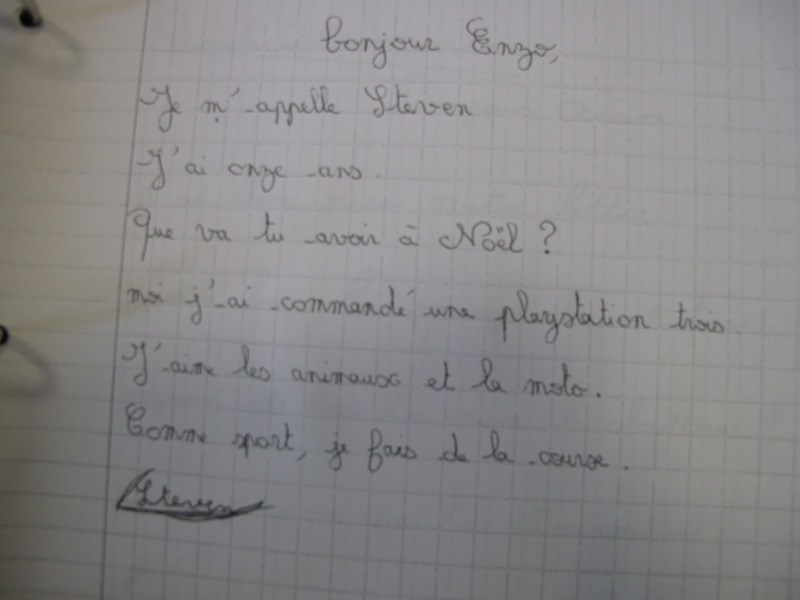 bonjour Enzo,
Je m'appelle Steven
J'ai onze ans.
Que va tu avoir à Noël ?
moi j'ai commandé une playstation trois.
J'aime les animaux et la moto.
Comme sport, je fais de la course.
Steven